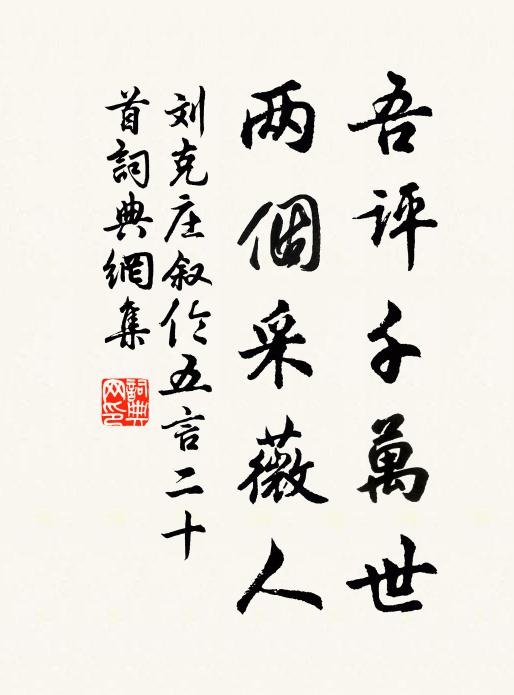 吾評千萬世
两個采薇人
刘克庄叙伦五言二十
首詞典網集
詞典网印